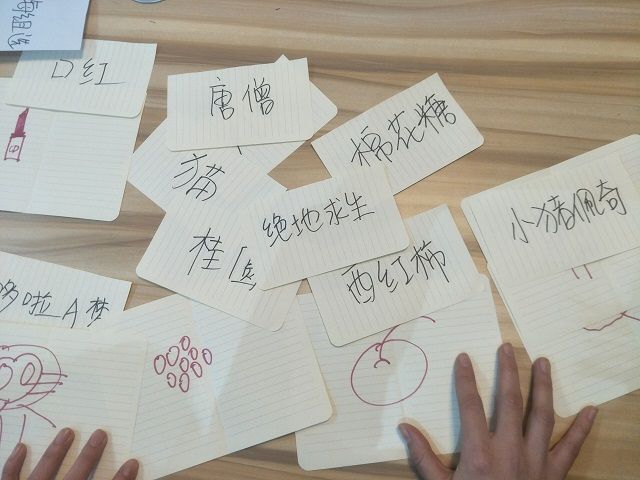 每组选
口红
唐僧
棉花糖
猫
绝地求生
小猪佩奇
桂圆
西红柿
哆啦A梦